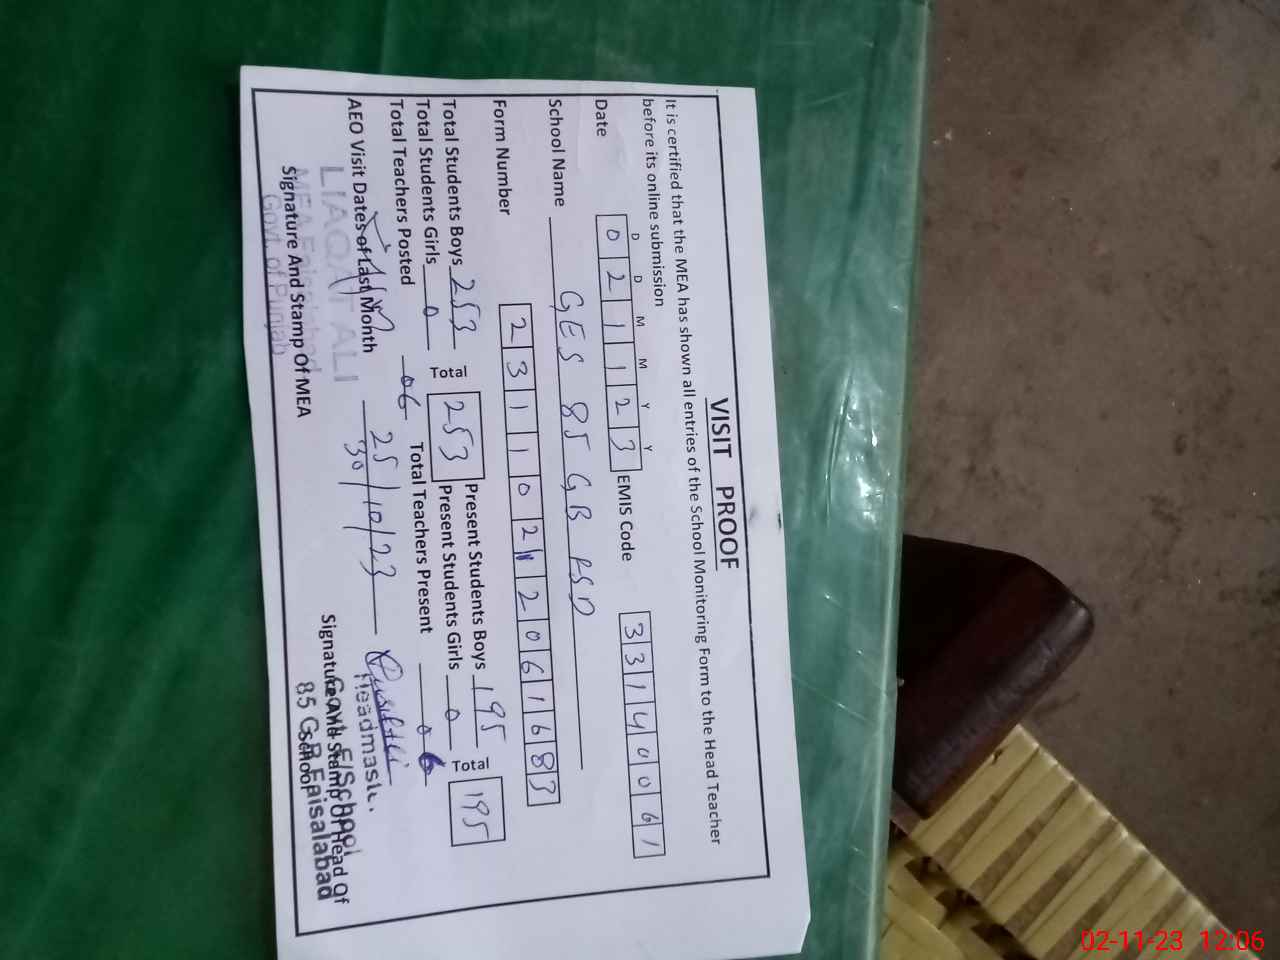 VISIT PROOF
It is certified that the MEA has shown all entries of the School Monitoring Form to the Head Teacher
before its online submission
D D M M Y Y
Date 0 2 1 1 2 3 EMIS Code 3 3 1 4 0 0 6 1
School Name GES 85 GB FSD
Form Number 2 3 1 1 0 2 1 2 0 6 1 6 8 3
Total Students Boys 253 Total 253 Present Students Boys 195 Total 195
Total Students Girls 0 Present Students Girls 0
Total Teachers Posted 06 Total Teachers Present 06
AEO Visit Dates of Last Month 25/10/23
30
LIAQAT ALI
MEA Faisalabad
Govt. of Punjab
Signature And Stamp Of MEA
Headmaste.
Govt. E/School
85 G.B Faisalabad
Signature And Stamp Of Head Of
School
02-11-23 12:06